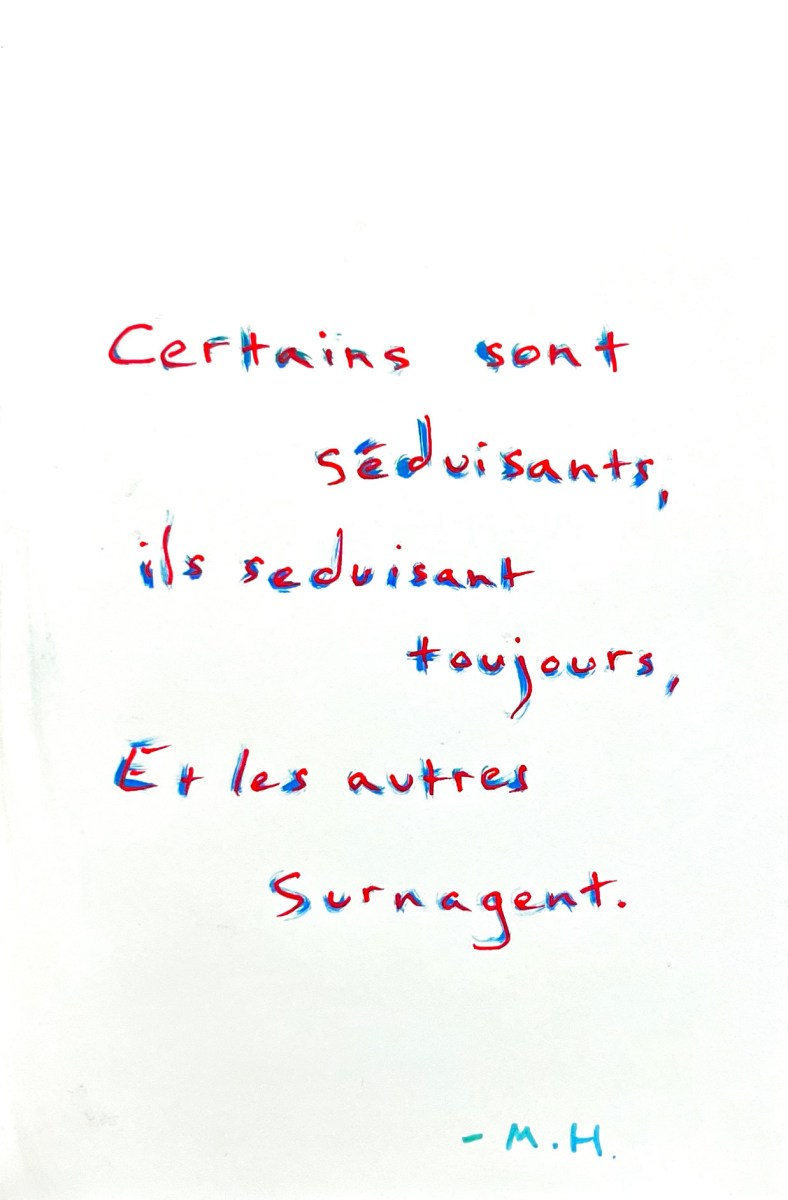 Certains sont
séduisants,
ils seduisant
toujours,
Et les autres
Surnagent.
- M.H.